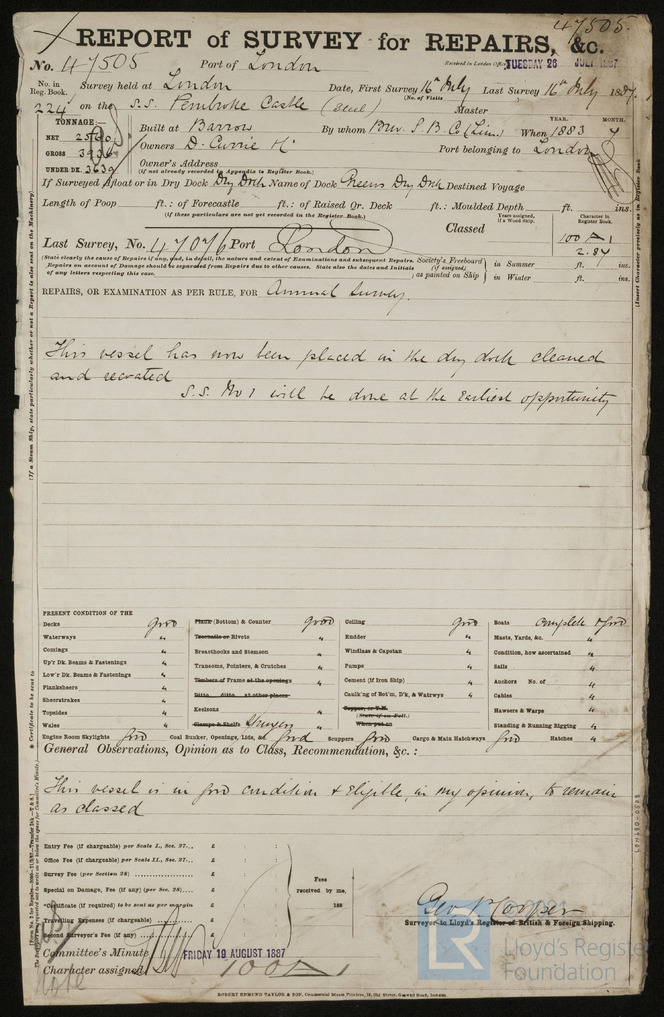 47505.
REPORT of SURVEY for REPAIRS, &c.
No. 47505 Port of London Received in London Office TUESDAY 26 JULY 1887
No. in Reg. Book. Survey held at London Date, First Survey 16th July Last Survey 16th July 1887
(No. of Visits
224 on the S.S. Pembroke Castle (Steel) Master
TONNAGE:— YEAR. MONTH.
NET Built at Barrow By whom Brw. S. B. Co (Lim) When 1883 7
GROSS 3936 Owners D. Currie Port belonging to London
UNDER DK. 3639 Owner's Address
(If not already recorded in Appendix to Register Book.)
If Surveyed Afloat or in Dry Dock Dry Dock Name of Dock Greens Dry Dock Destined Voyage
Length of Poop ft.: of Forecastle ft.: of Raised Qr. Deck ft.: Moulded Depth ft. ins.
(If these particulars are not yet recorded in the Register Book.) Years assigned, if a Wood Ship. Character in Register Book.
Classed 100 A 1
Last Survey, No. 47076 Port London 2.84
(State clearly the cause of Repairs if any, and, in detail, the nature and extent of Examinations and subsequent Repairs. Repairs on account of Damage should be separated from Repairs due to other causes. State also the dates and Initials of any letters respecting this case.
Society's Freeboard (if assigned) as painted on Ship in Summer ft. ins.
in Winter ft. ins.
REPAIRS, OR EXAMINATION AS PER RULE, FOR Annual Survey.
This vessel has now been placed in the dry dock cleaned
and recoated
S.S. No 1 will be done at the earliest opportunity
PRESENT CONDITION OF THE
Decks good
Waterways "
Comings "
Up'r Dk. Beams & Fastenings "
Low'r Dk. Beams & Fastenings "
Planksheers "
Sheerstrakes "
Topsides "
Wales "
Plank (Bottom) & Counter good
Treenails or Rivets "
Breasthooks and Stemson "
Transoms, Pointers, & Crutches "
Timbers of Frame at the openings "
Ditto ditto at other places
Keelsons "
Clamps & Shelfs Stringers "
Ceiling good
Rudder "
Windlass & Capstan "
Pumps "
Cement (if Iron Ship) "
Caulk'ng of Bot'm, D'k, & Watrwys "
Copper, or Y.M.
(State if on Felt.)
When put on
Boats Complete & good
Masts, Yards, &c. "
Condition, how ascertained "
Sails "
Anchors No. of "
Cables "
Hawsers & Warps "
Standing & Running Rigging "
Engine Room Skylights good Coal Bunker, Openings, Lids, &c. good Scuppers good Cargo & Main Hatchways good Hatches "
General Observations, Opinion as to Class, Recommendation, &c. :
This vessel is in good condition & Eligible, in my opinion, to remain
as classed
Entry Fee (if chargeable) per Scale I., Sec. 27... £ : :
Office Fee (if chargeable) per Scale II., Sec. 27... £ : :
Survey Fee (per Section 28) £ : :
Special on Damage, Fee (if any) (per Sec. 28) £ : :
*Certificate (if required) to be sent as per margin £ : :
Travelling Expenses (if chargeable) £ : :
Second Surveyor's Fee (if any) £ : :
Fees received by me, 188
Geo. Cooper
Surveyor to Lloyd's Register of British & Foreign Shipping.
Committee's Minute FRIDAY 19 AUGUST 1887
Character assigned 100 A 1
ROBERT EDMUND TAYLOR & SON, Commercial Steam Printers, 19, Old Street, Goswell Road, London.
(If a Steam Ship, state particularly whether or not a Report is also sent on the Machinery)
* Certificate to be sent to
(Insert Character precisely as in Register Book
LR
Lloyd's Register
Foundation